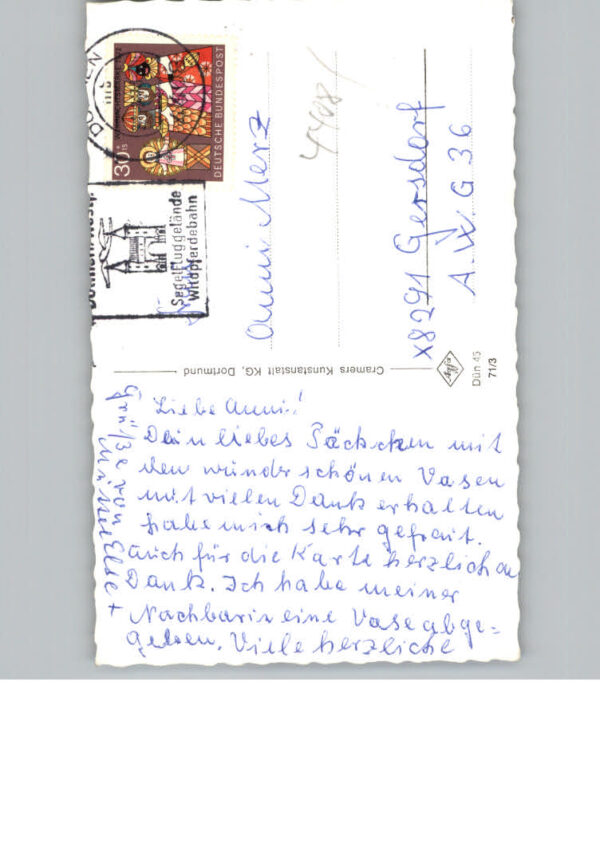 Liebe Anni!
Dein liebes Päckchen mit
den wunderschönen Vasen
mit vielen Dank erhalten
habe mich sehr gefreut.
Auch für die Karte herzlichen
Dank. Ich habe meiner
Nachbarin eine Vase abge-
geben. Viele herzliche
Grüße von
Else +
Cramers Kunstanstalt KG, Dortmund
Dün 45
71/3
Frau
Anni Merz
X8291 Gersdorf
A.W.G 36
4408/
30+15
DEUTSCHE BUNDESPOST
Segelfluggelände
Wildpferdebahn